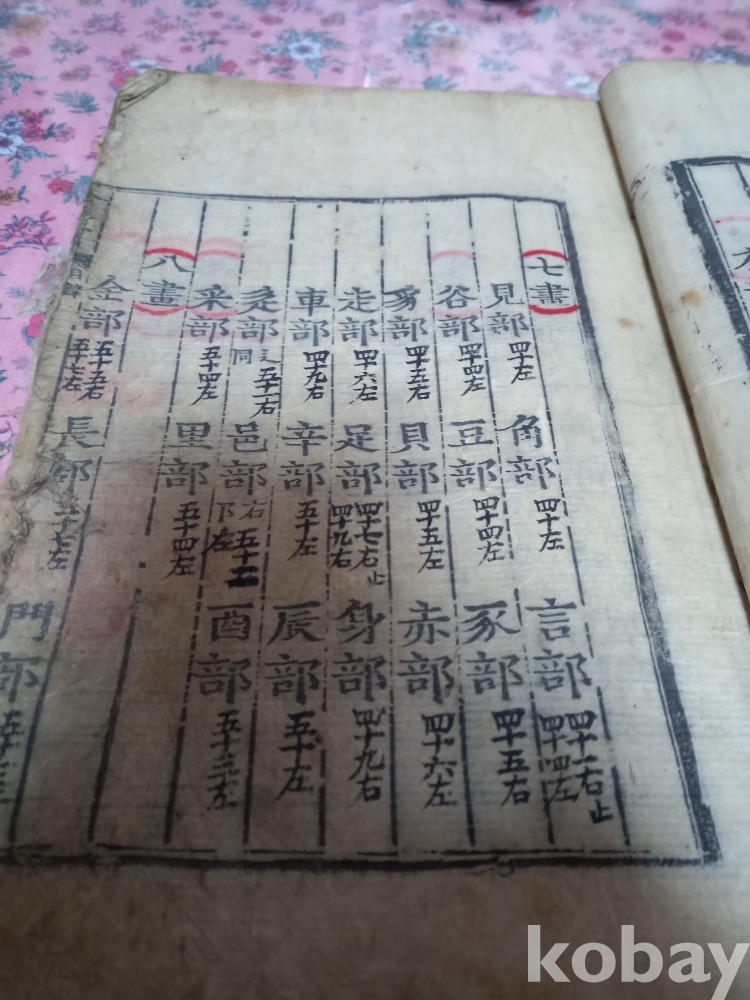 七畫
見部 四十左
角部 四十左
言部 四十一右 止 四十四左
谷部 四十四左
豆部 四十四左
豕部 四十五右
豸部 四十五右
貝部 四十五左
赤部 四十六左
走部 四十六左
足部 四十七右 止 四十九右
身部 四十九右
車部 四十九右
辛部 五十左
辰部 五十左
辵部 辶同 五十一右
邑部 右
酉部 五十三左
釆部 五十四左
里部 五十四左
八畫
金部 五十五右 五十七左
長部 五十七左
門部
kobay